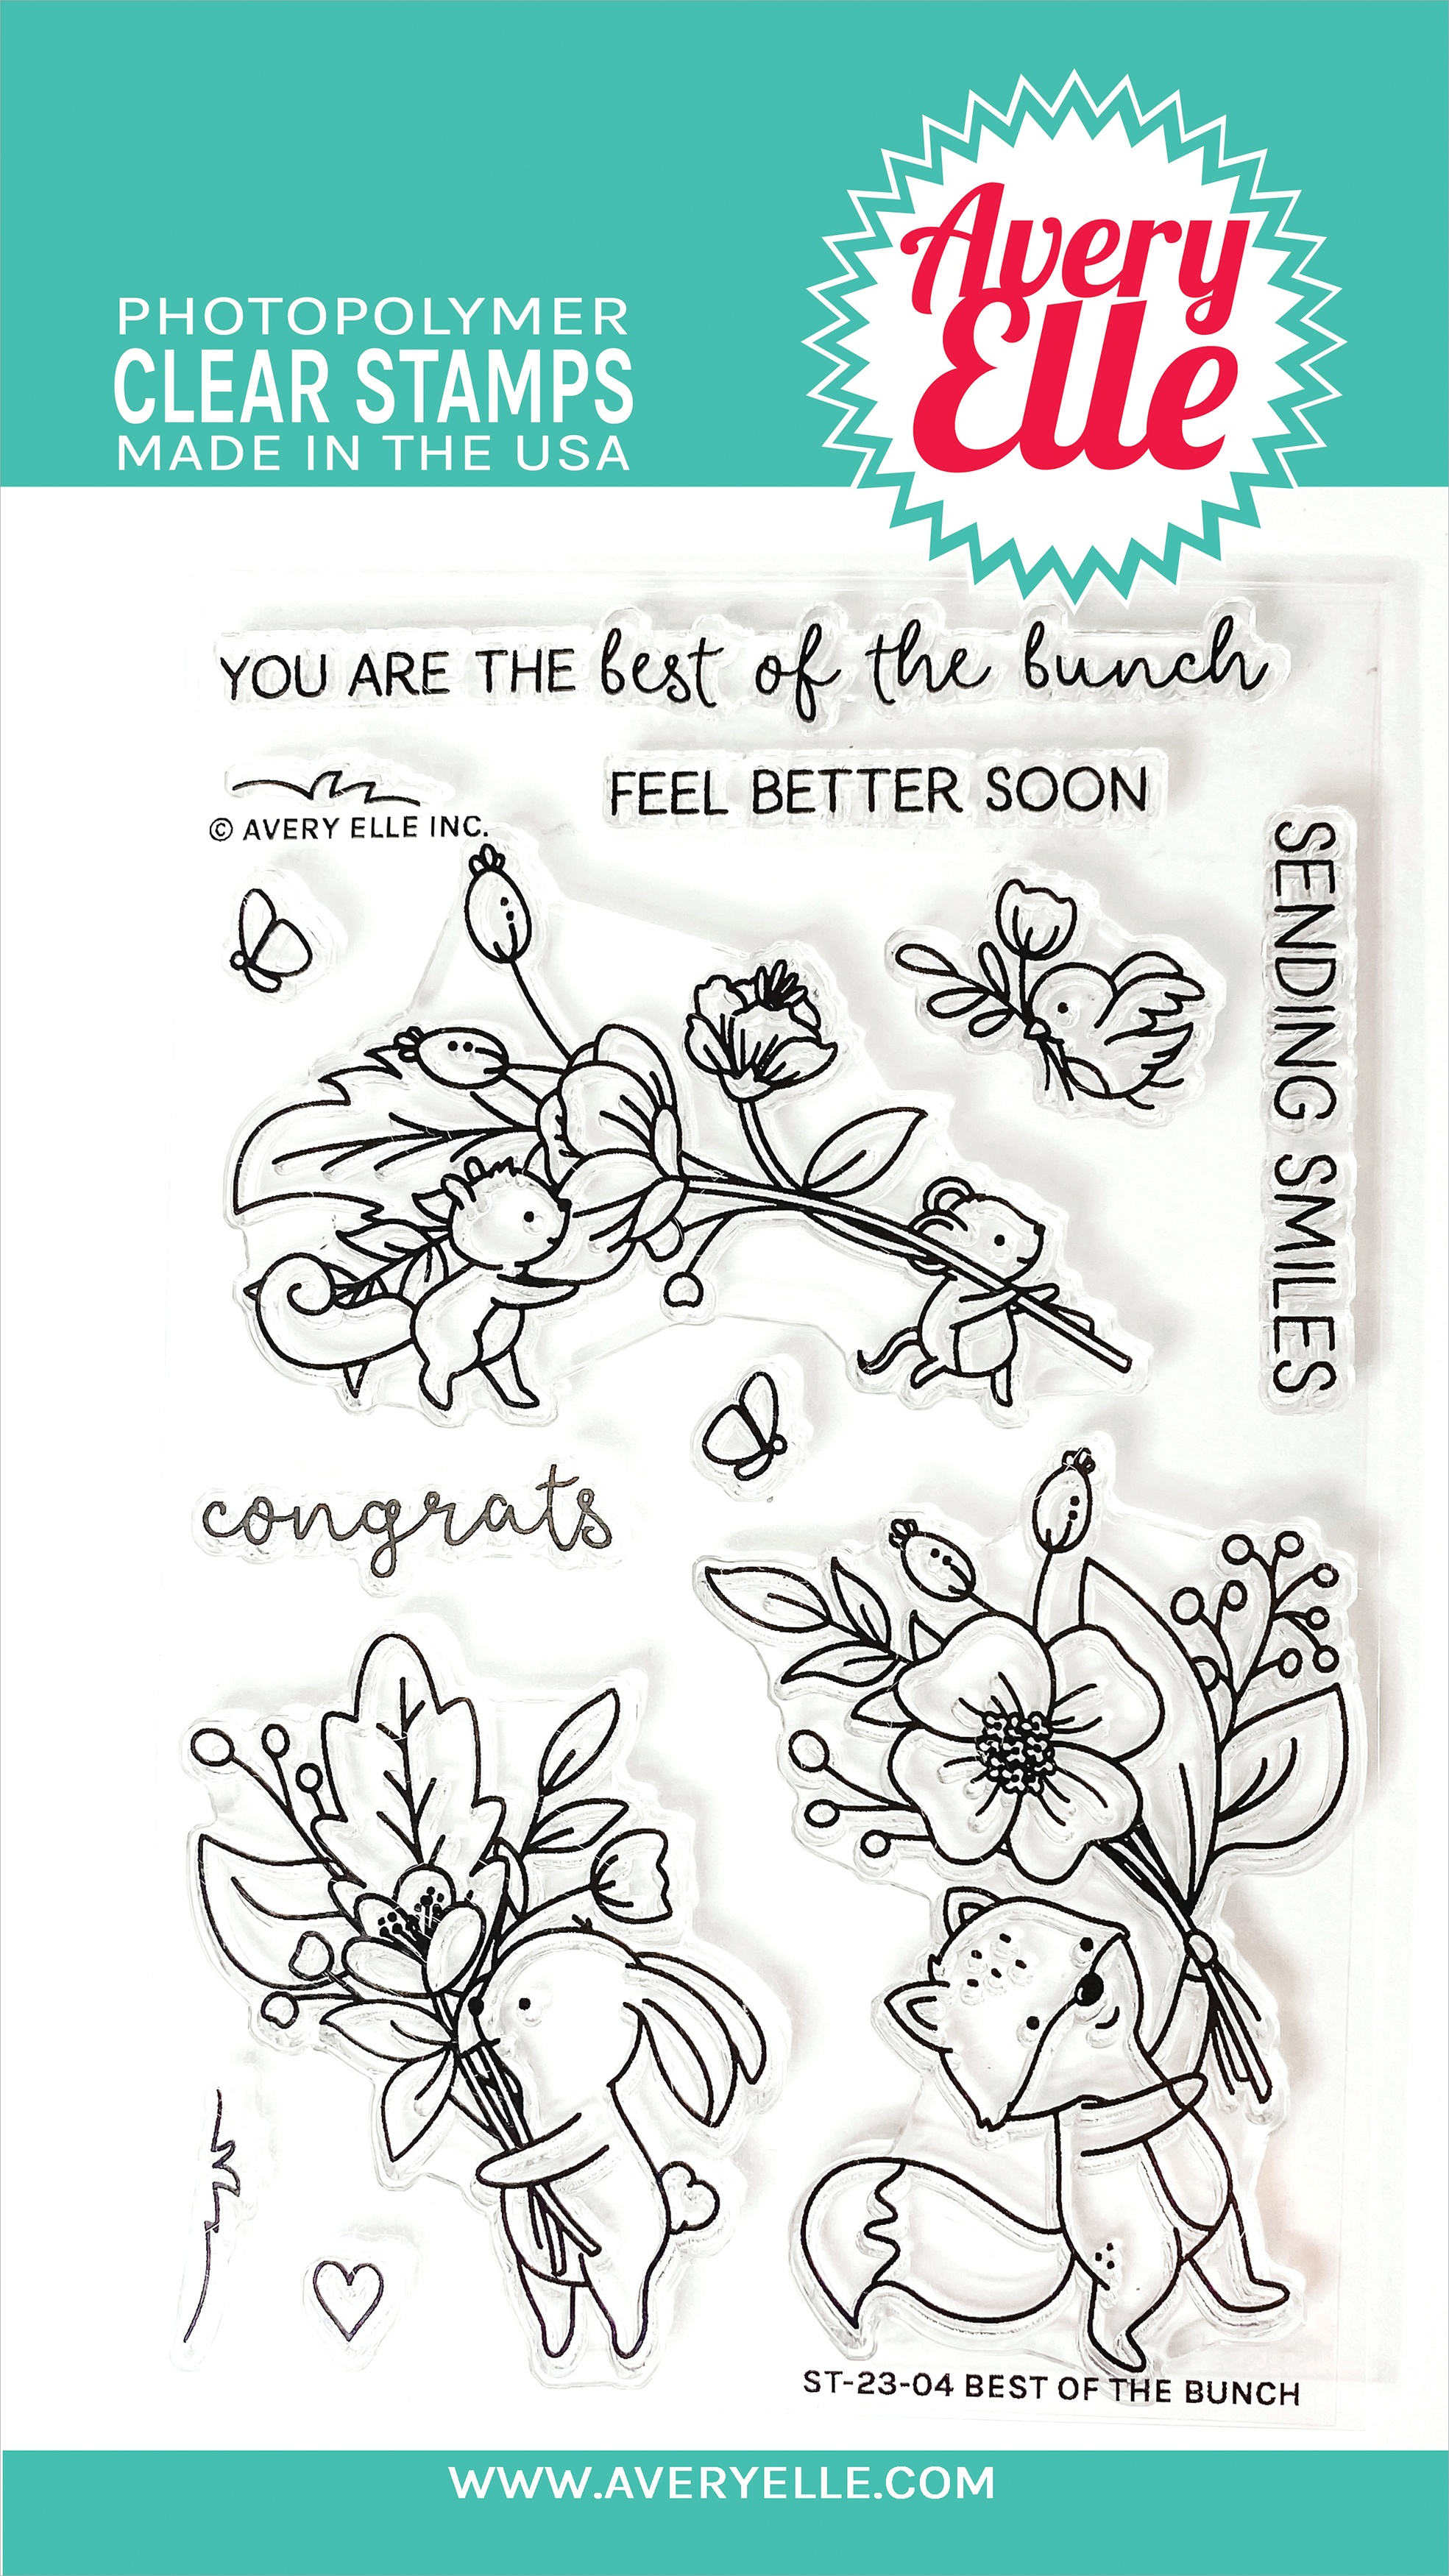 Avery
Elle
PHOTOPOLYMER
CLEAR STAMPS
MADE IN THE USA
YOU ARE THE best of the bunch
FEEL BETTER SOON
© AVERY ELLE INC.
SENDING SMILES
congrats
ST-23-04 BEST OF THE BUNCH
WWW.AVERYELLE.COM